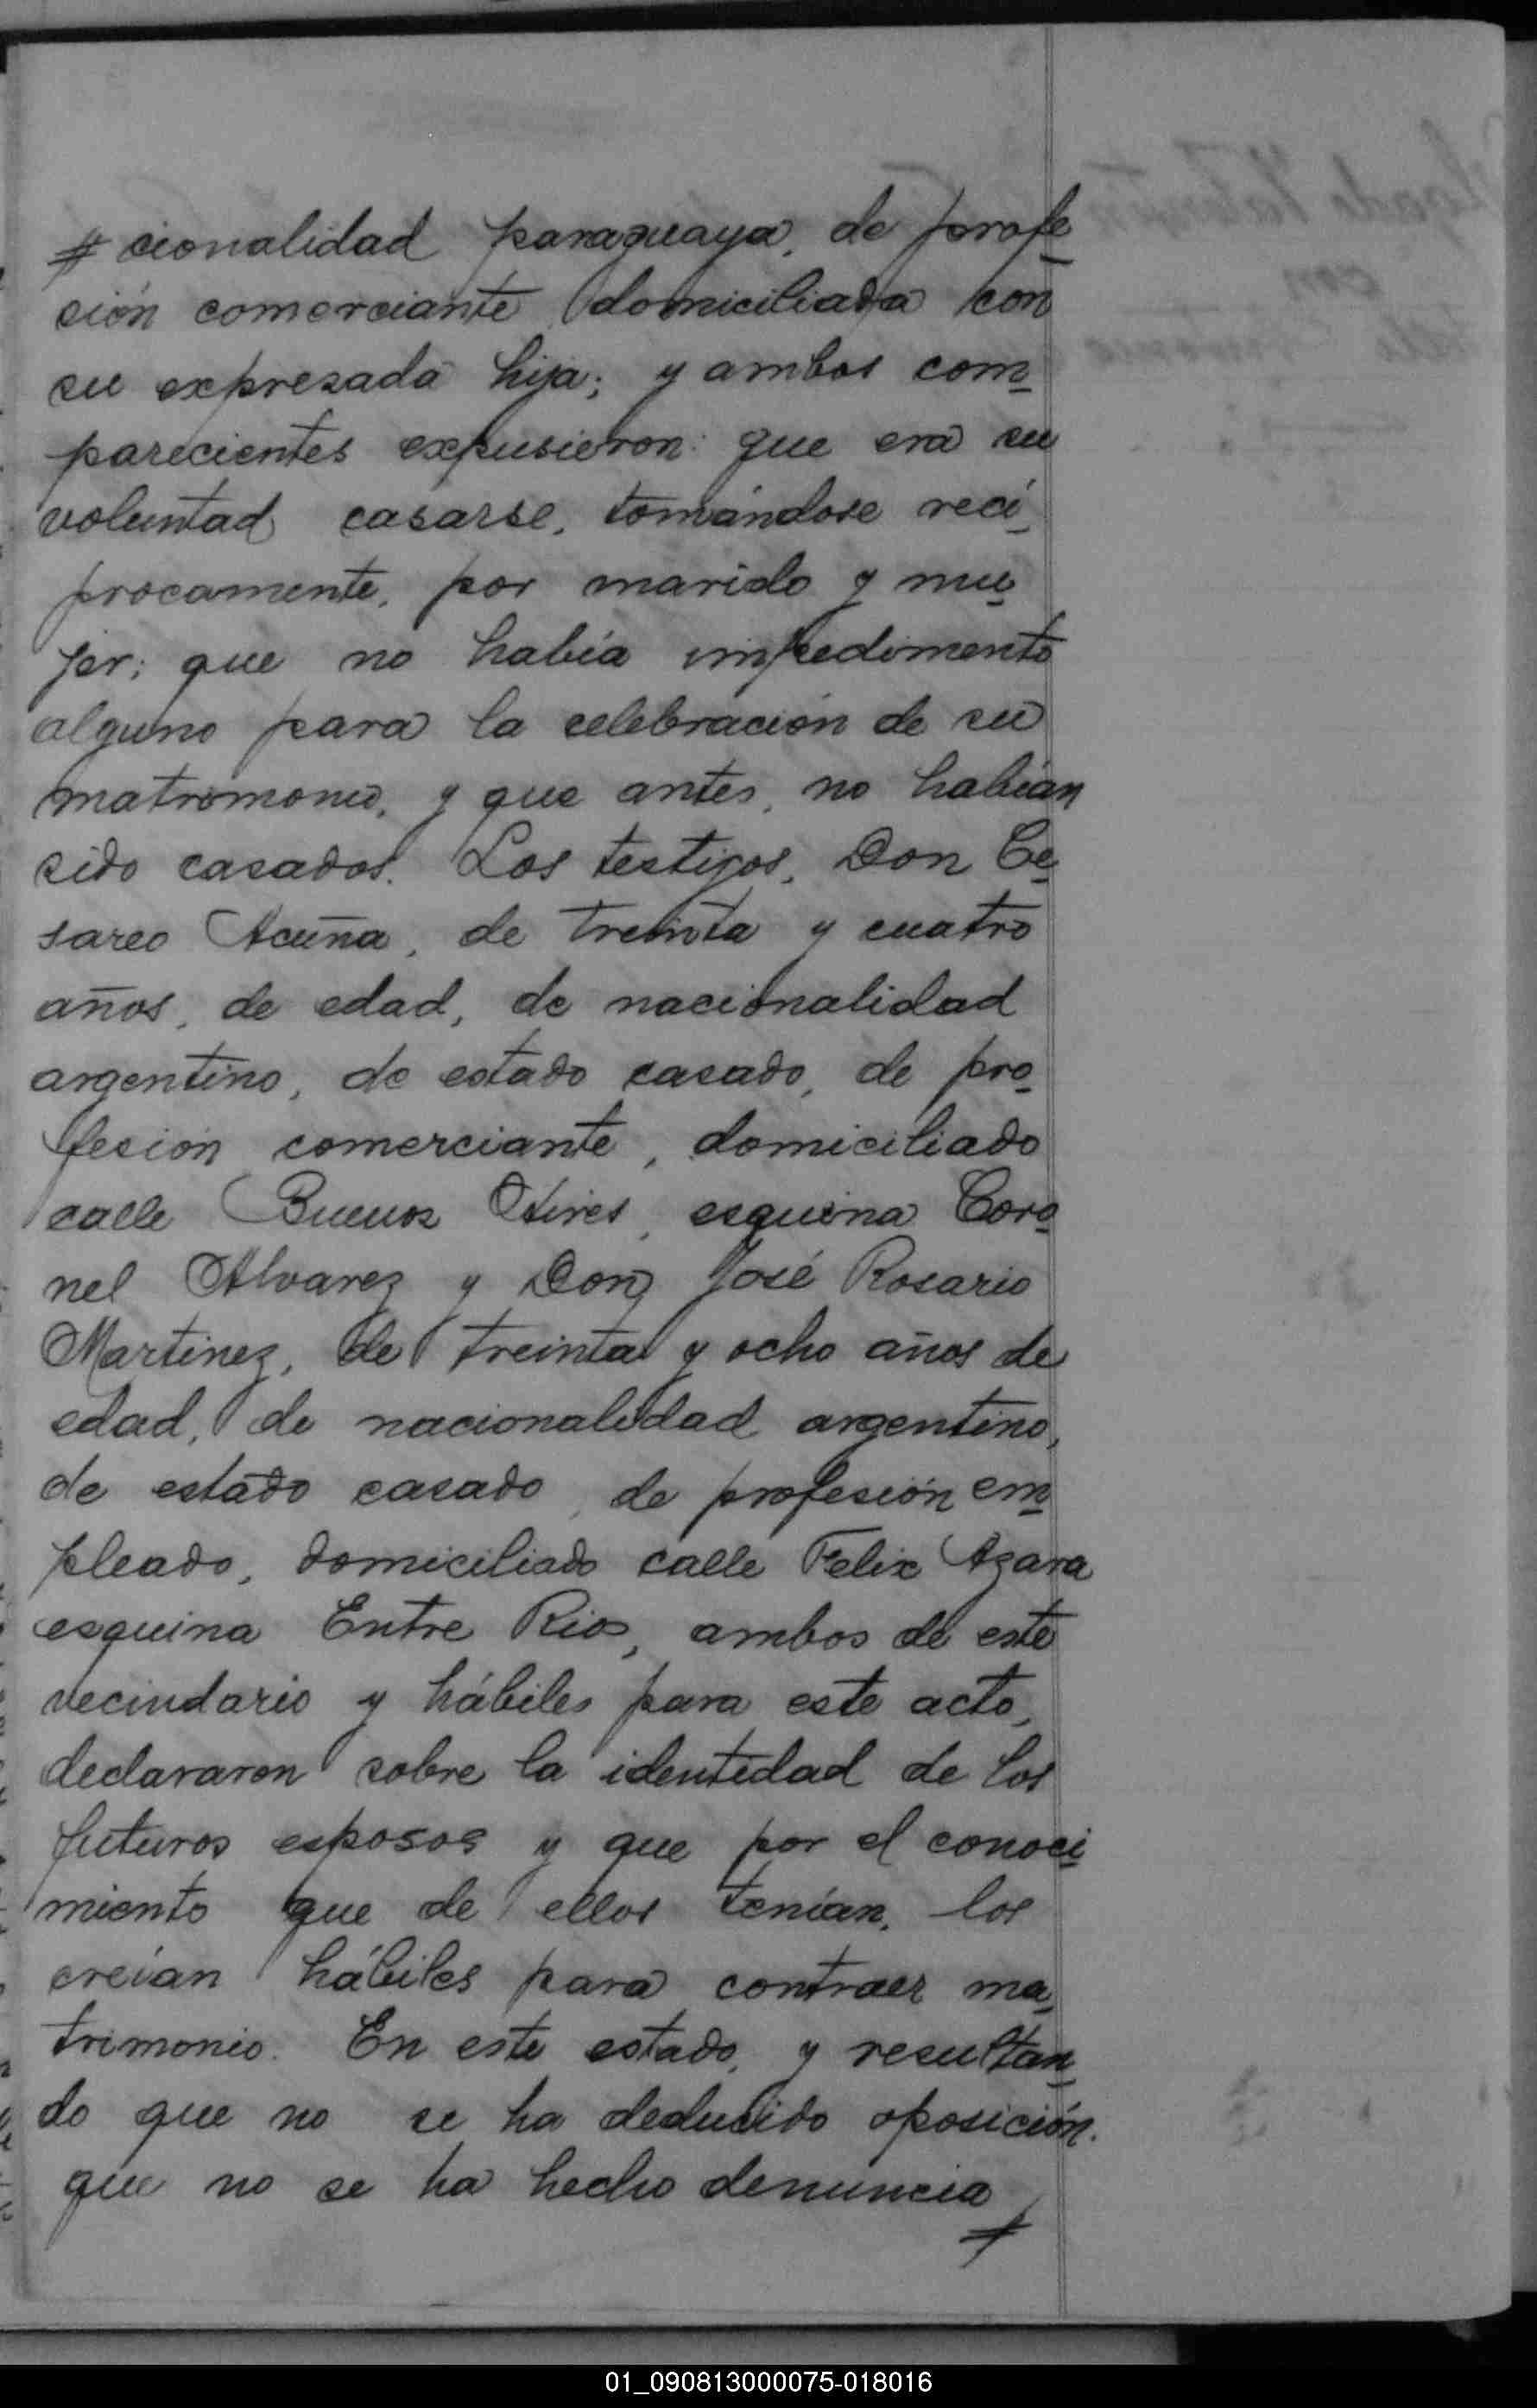 # cionalidad paraguaya, de profe
sión comerciante, domiciliada con
su expresada hija; y ambos com
parecientes expusieron: que era su
voluntad casarse, tomándose reci
procamente, por marido y mu
jer; que no había impedimento
alguno para la celebración de su
matrimonio, y que antes, no habían
sido casados. Los testigos, Don Ce
sareo Acuña, de treinta y cuatro
años, de edad, de nacionalidad
argentino, de estado casado, de pro
fesión comerciante, domiciliado
calle Buenos Aires, esquina Coro
nel Alvarez y Don José Rosario
Martinez, de treinta y ocho años de
edad, de nacionalidad argentino,
de estado casado, de profesión em
pleado, domiciliado calle Felix Azara
esquina Entre Rios, ambos de este
vecindario y hábiles para este acto,
declararon sobre la identidad de los
futuros esposos y que por el conoci
miento que de ellos tenían, los
creían hábiles para contraer ma
trimonio. En este estado, y resultan
do que no se ha deducido oposición.
que no se ha hecho denuncia
#
01_090813000075-018016